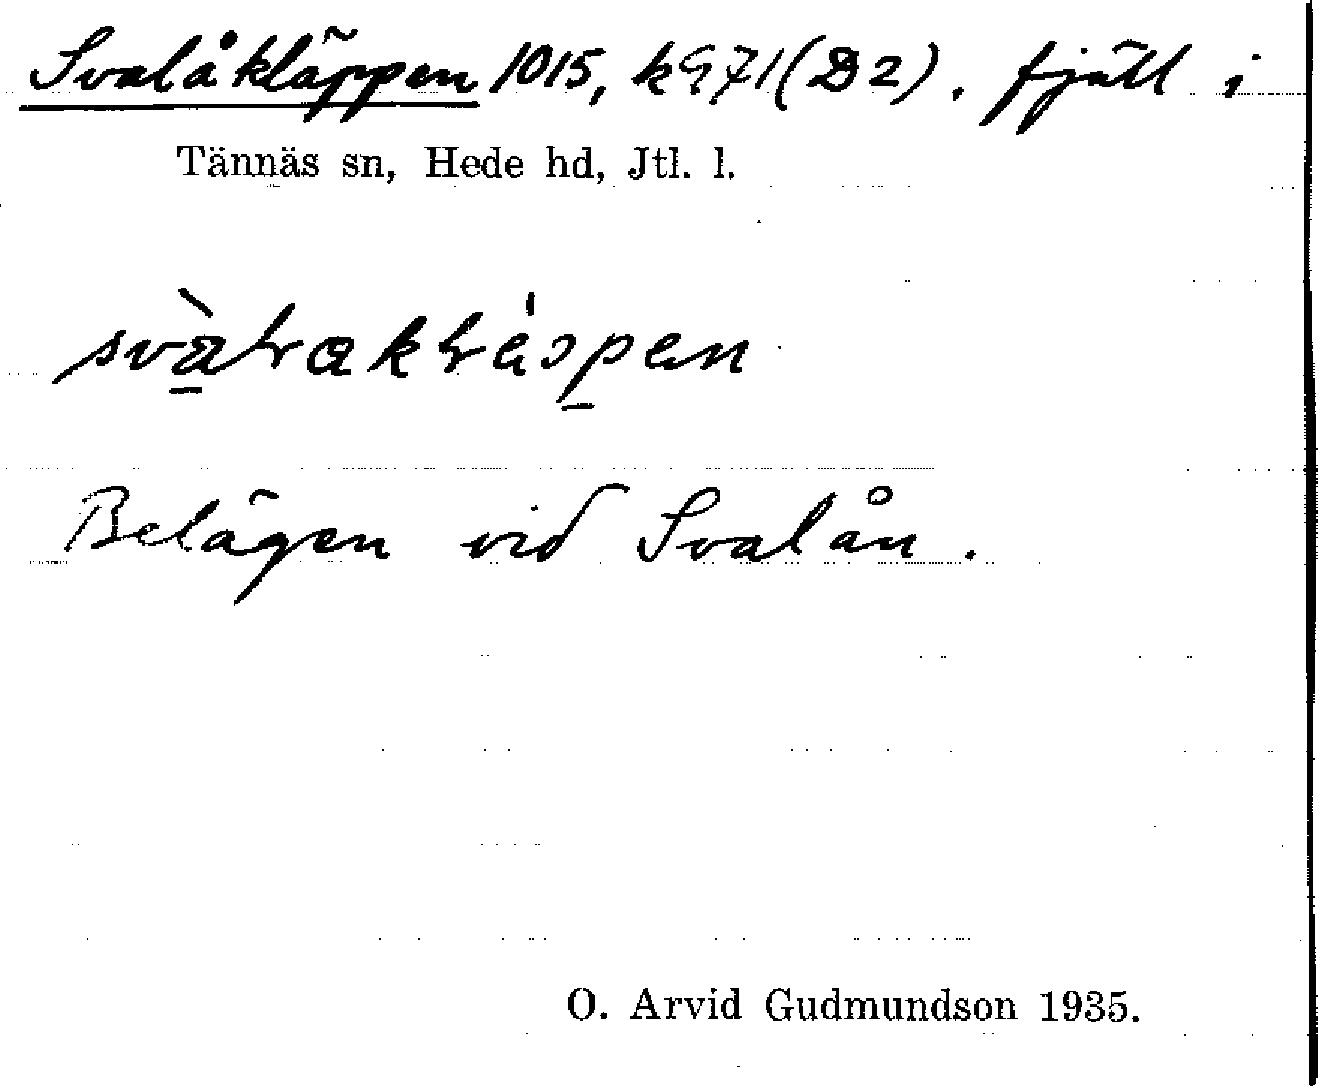 Svalåkläppen 1015, k 971 (D2). fjäll i
Tännäs sn, Hede hd, Jtl. l.
Belägen vid Svalån.
O. Arvid Gudmundson 1935.